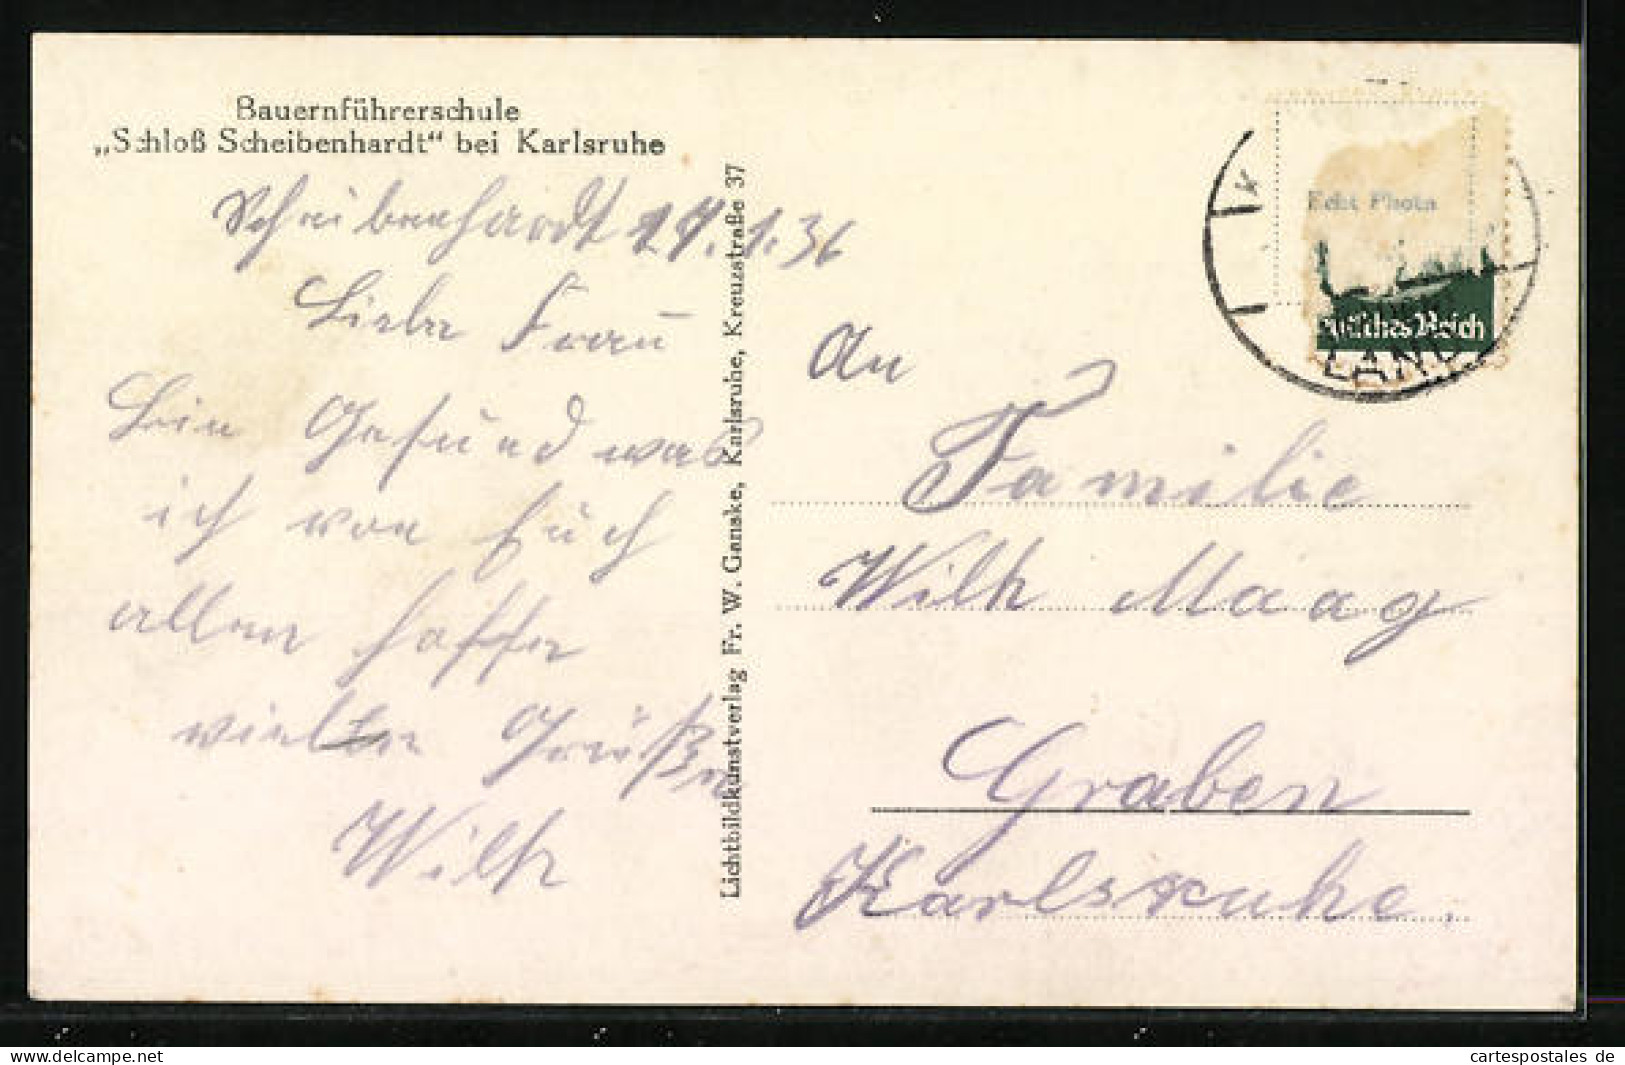 Bauernführerschule
„Schloß Scheibenhardt“ bei Karlsruhe
Scheibenhardt 14.1.36
Liebe Frau
Bin Gesund was
ich von Euch
allen hoffe
vielen Grüßen
Wilh
Lichtbildkunstverlag Fr. W. Ganske, Karlsruhe, Kreuzstraße 37
Echt Photo
Deutsches Reich
LAND
An
Familie
Wilh Maag
Graben
Karlsruhe.
cartespostales de